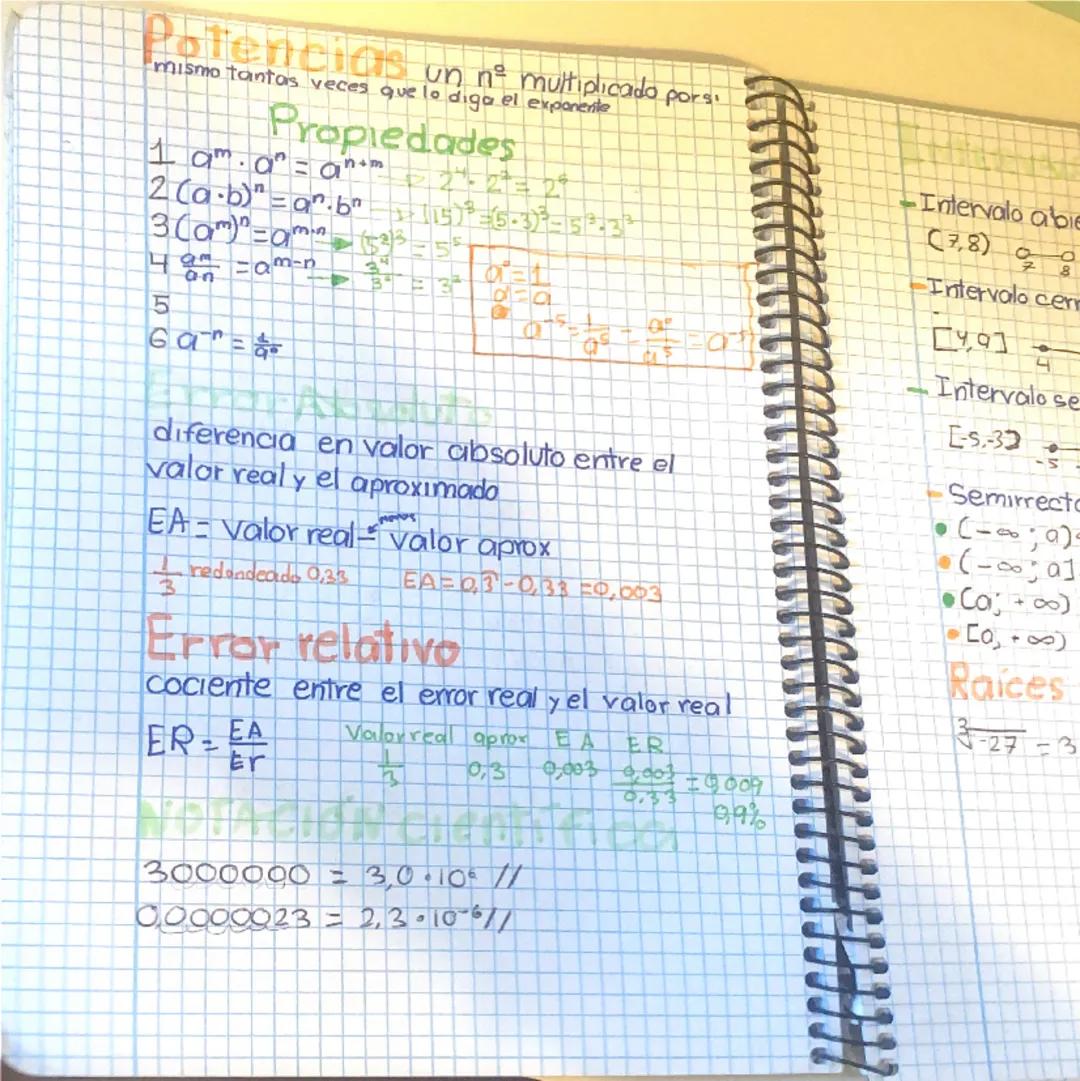 Potencias un nº multiplicado por si
mismo tantas veces que lo diga el exponente
Propiedades
1 aᵐ · aⁿ = aⁿ⁺ᵐ
2 (a·b)ⁿ = aⁿ·bⁿ → (15)³ = (5·3)³ = 5³·3³
3 (aᵐ)ⁿ = aᵐ·ⁿ
4 aᵐ/aⁿ = aᵐ⁻ⁿ
5
6 a⁻ⁿ = 1/aⁿ
a⁰ = 1
a¹ = a
a⁻⁵ = 1/a⁵ = a⁰/a⁵ = a⁻⁵
Error Absoluto
diferencia en valor absoluto entre el
valor real y el aproximado
EA = valor real - menos valor aprox
1/3 redondeado 0,33 EA = 0,3 - 0,33 = 0,003
Error relativo
cociente entre el error real y el valor real
ER = EA/Er
Valor real aprox EA ER
1/3 0,3 0,003 0,003/0,33 = 0,009
0,9%
NOTACIÓN científica
3000000 = 3,0 · 10⁶ //
0,0000023 = 2,3 · 10⁻⁶ //
- Intervalo abie
(7,8) 7 8
- Intervalo cerr
[4,9] 4
- Intervalo se
[-5,-3) -5
- Semirrect
• (-∞; a)
• (-∞; a]
• (a; +∞)
• [a, +∞)
Raíces
³√-27 = 3